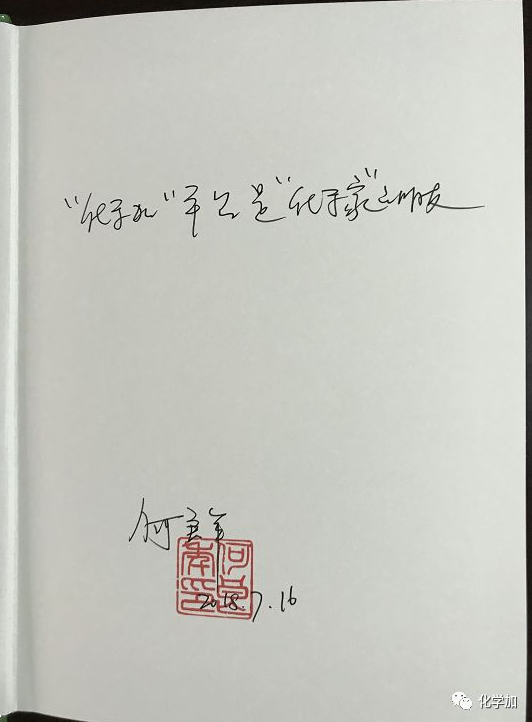 "化学加"平台是"化学家"之朋友
何良年
何良年印
2018.7.16
化学加